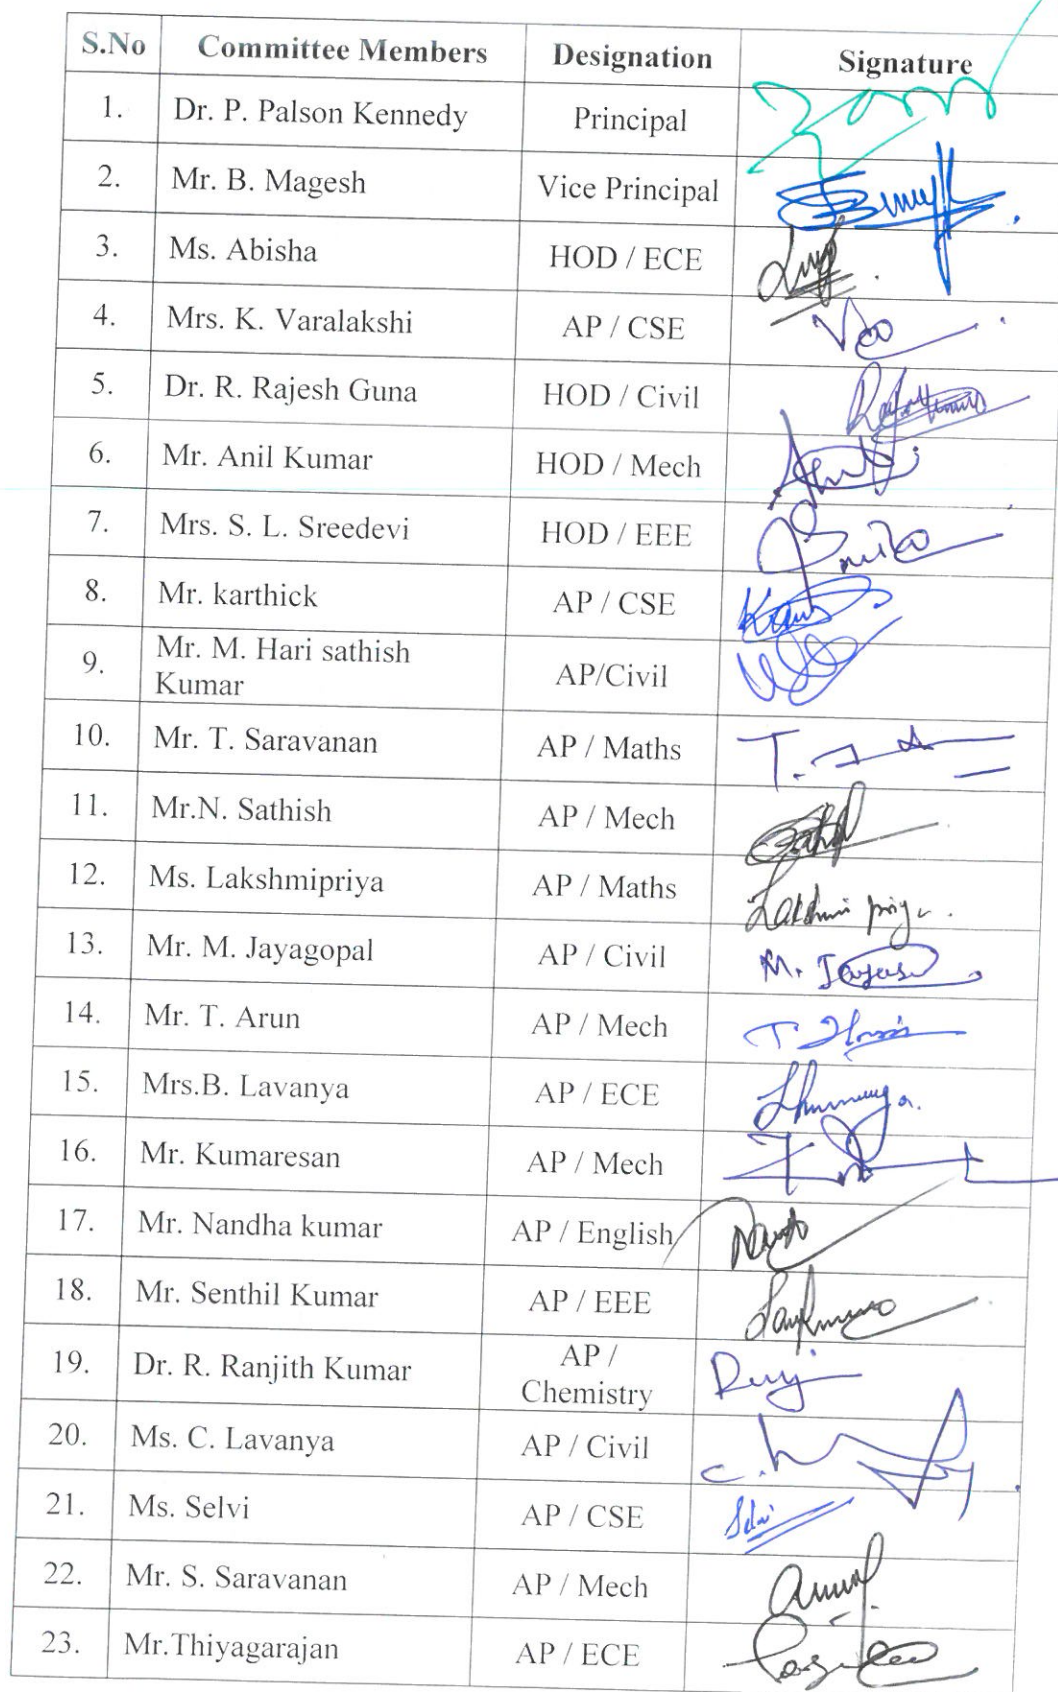 S.No Committee Members Designation Signature
1. Dr. P. Palson Kennedy Principal
2. Mr. B. Magesh Vice Principal
3. Ms. Abisha HOD / ECE
4. Mrs. K. Varalakshi AP / CSE
5. Dr. R. Rajesh Guna HOD / Civil
6. Mr. Anil Kumar HOD / Mech
7. Mrs. S. L. Sreedevi HOD / EEE
8. Mr. karthick AP / CSE
9. Mr. M. Hari sathish
Kumar AP/Civil
10. Mr. T. Saravanan AP / Maths
11. Mr.N. Sathish AP / Mech
12. Ms. Lakshmipriya AP / Maths Lakshmi priya.
13. Mr. M. Jayagopal AP / Civil
14. Mr. T. Arun AP / Mech
15. Mrs.B. Lavanya AP / ECE
16. Mr. Kumaresan AP / Mech
17. Mr. Nandha kumar AP / English
18. Mr. Senthil Kumar AP / EEE
19. Dr. R. Ranjith Kumar AP /
Chemistry
20. Ms. C. Lavanya AP / Civil
21. Ms. Selvi AP / CSE Selvi
22. Mr. S. Saravanan AP / Mech
23. Mr.Thiyagarajan AP / ECE